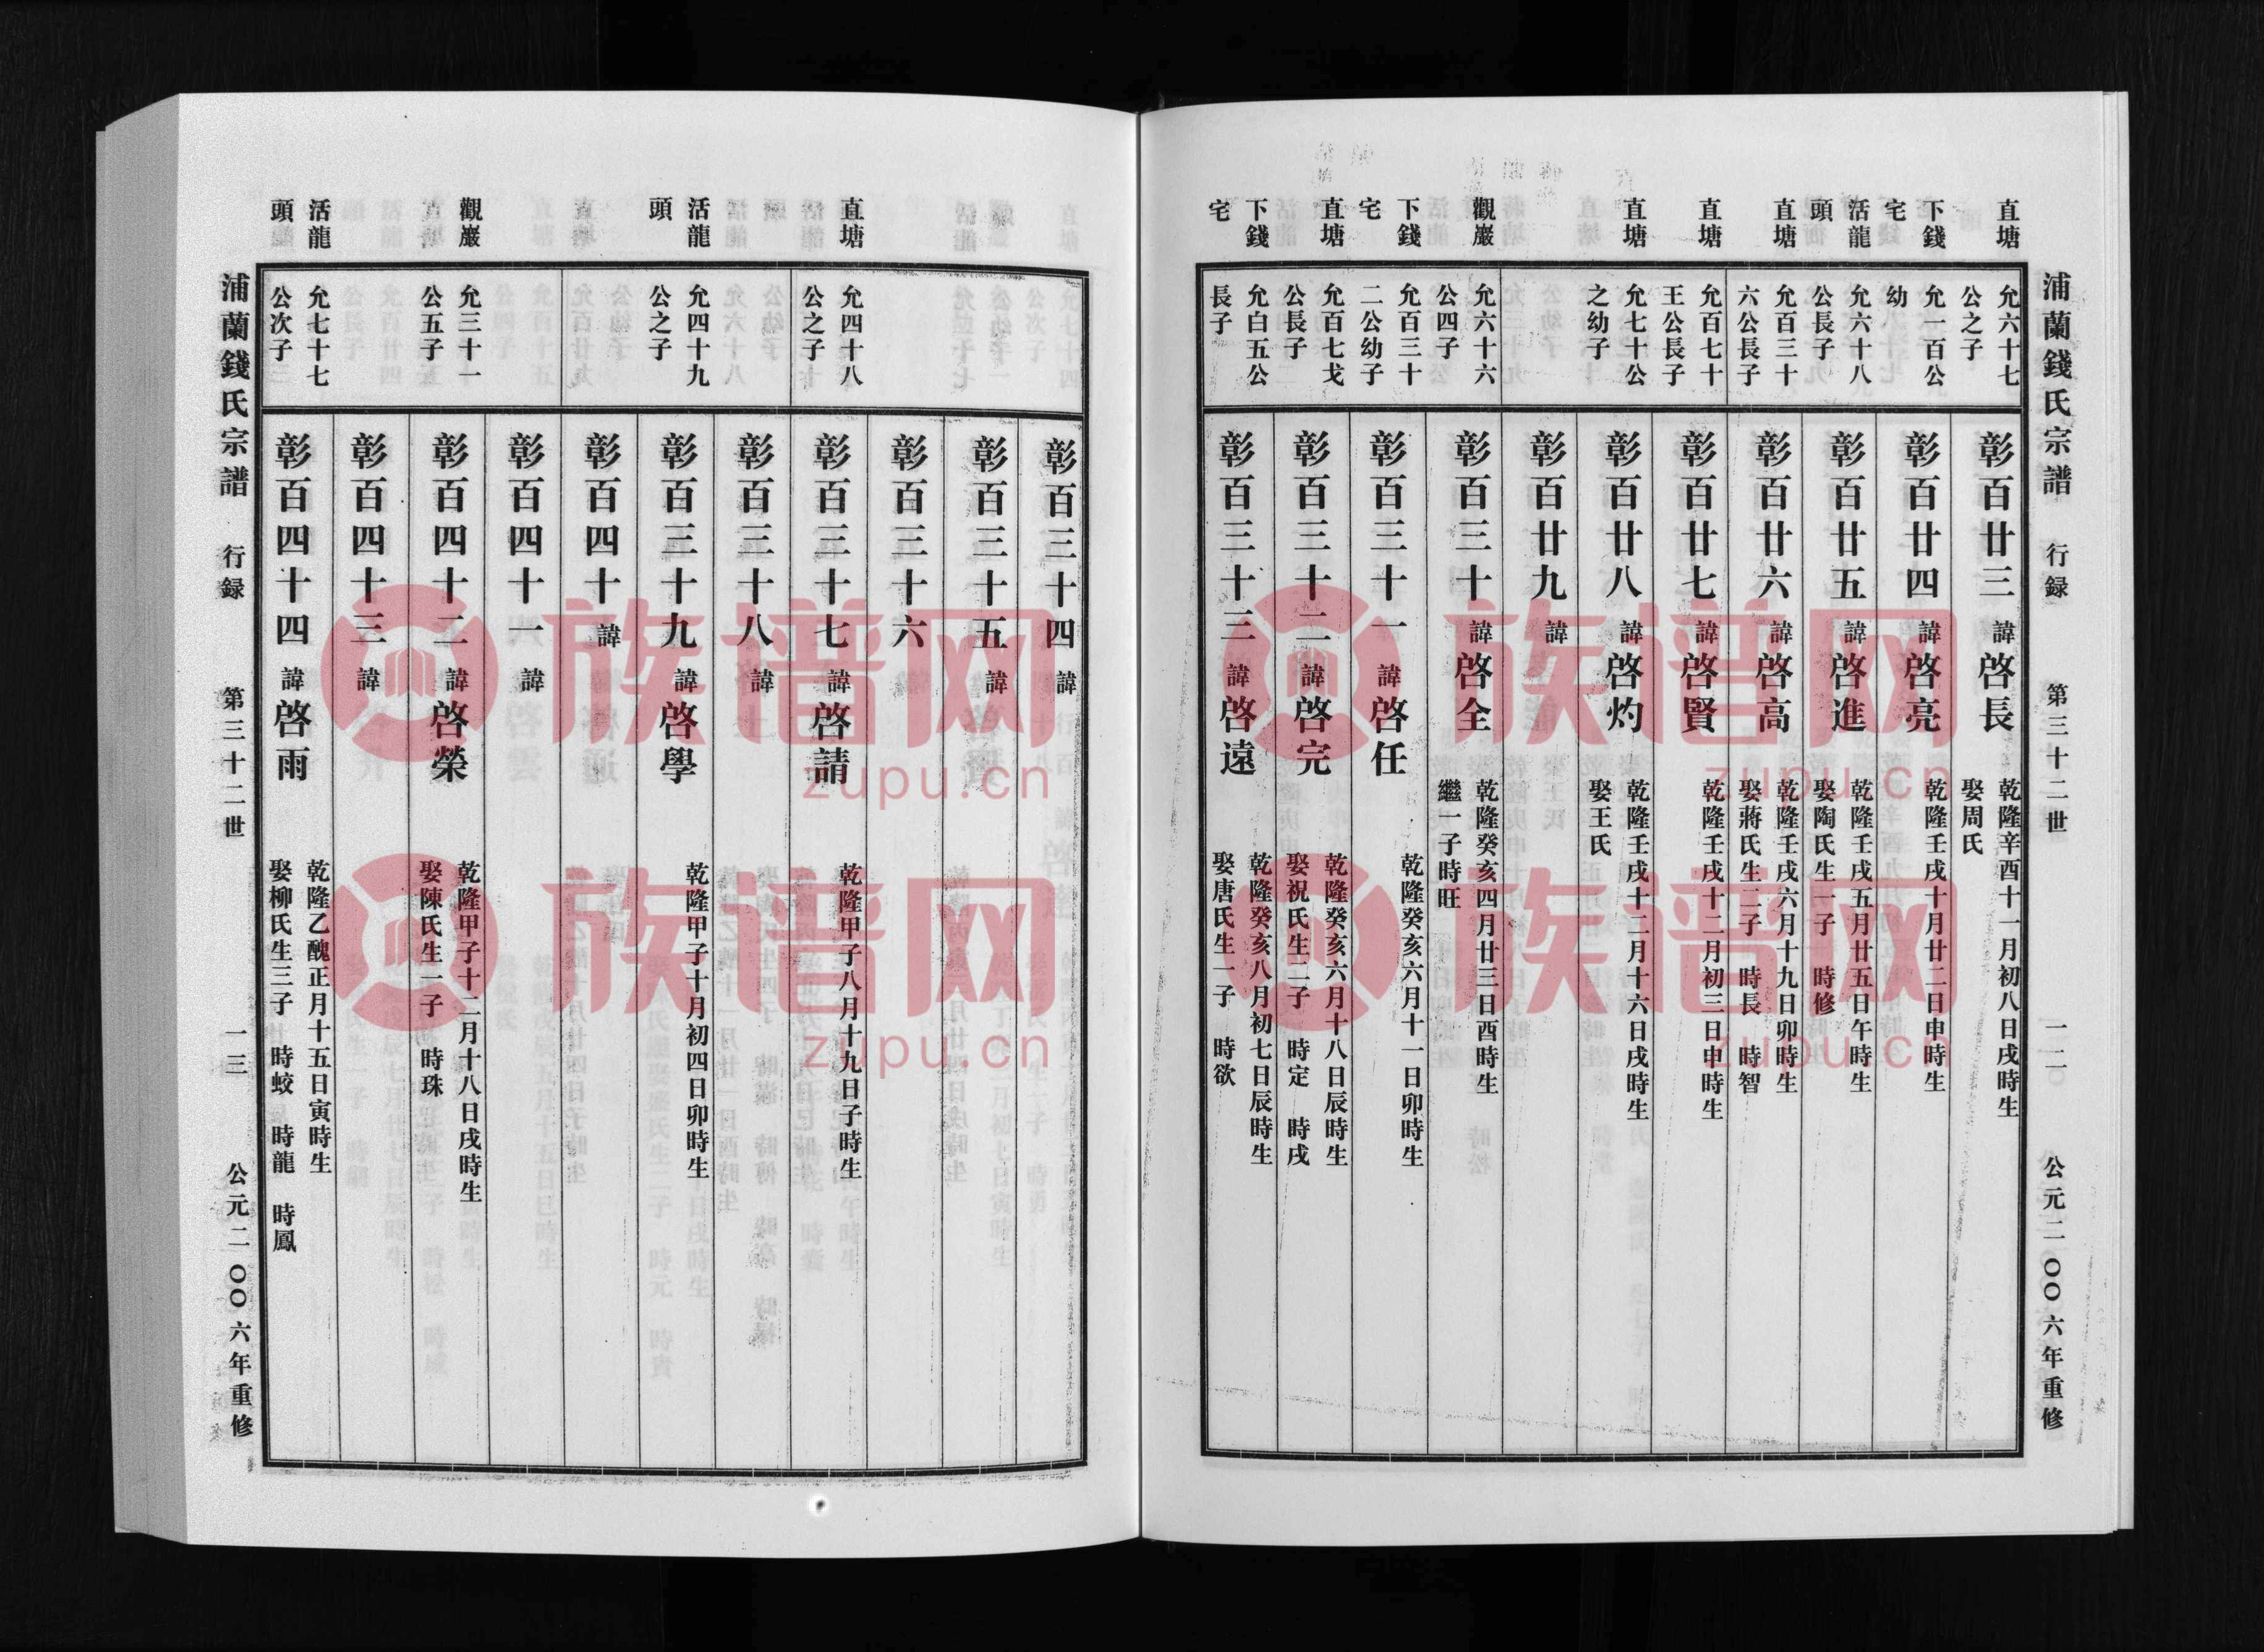 浦蘭錢氏宗譜 行録 第三十二世 一二 公元二〇〇六年重修
直塘
允六十七
公之子
彰百廿三 諱 啓長
乾隆辛酉十一月初八日戌時生
娶周氏
下錢
宅
允一百公
幼
彰百廿四 諱 啓亮
乾隆壬戌十月廿二日申時生
活龍
頭
允六十八
公長子
彰百廿五 諱 啓進
乾隆壬戌五月廿五日午時生
娶陶氏生一子 時修
直塘
允百三十
六公長子
彰百廿六 諱 啓高
乾隆壬戌六月十九日卯時生
娶蔣氏生二子 時長 時智
直塘
允百七十
王公長子
彰百廿七 諱 啓賢
乾隆壬戌十二月初三日申時生
直塘
允七十公
之幼子
彰百廿八 諱 啓灼
乾隆壬戌十二月十六日戌時生
娶王氏
彰百廿九 諱
觀巖
允六十六
公四子
彰百三十 諱 啓全
乾隆癸亥四月廿三日酉時生
繼一子時旺
下錢
宅
允百三十
二公幼子
彰百三十一 諱 啓任
乾隆癸亥六月十一日卯時生
直塘
允百七戈
公長子
彰百三十二 諱 啓完
乾隆癸亥六月十八日辰時生
娶祝氏生二子 時定 時戌
下錢
宅
允白五公
長子
彰百三十三 諱 啓遠
乾隆癸亥八月初七日辰時生
娶唐氏生一子 時欲
彰百三十四 諱
彰百三十五 諱
彰百三十六
直塘
允四十八
公之子
彰百三十七 諱 啓請
乾隆甲子八月十九日子時生
彰百三十八 諱
活龍
頭
允四十九
公之子
彰百三十九 諱 啓學
乾隆甲子十月初四日卯時生
彰百四十 諱
彰百四十一 諱
觀巖
允三十一
公五子
彰百四十二 諱 啓榮
乾隆甲子十二月十八日戌時生
娶陳氏生一子 時珠
彰百四十三 諱
活龍
頭
允七十七
公次子
彰百四十四 諱 啓雨
乾隆乙醜正月十五日寅時生
娶柳氏生三子 時蛟 時龍 時鳳
浦蘭錢氏宗譜 行録 第三十二世 一三 公元二〇〇六年重修
族谱网
zupu.cn
族谱网
zupu.cn
族谱网
zupu.cn
族谱网
zupu.cn